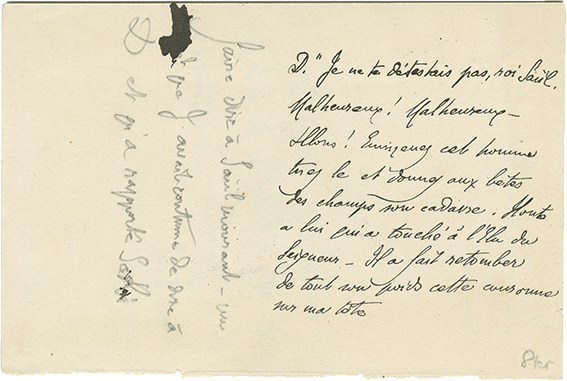 D. "Je ne te détestais pas, roi Saül.
Malheureux! Malheureux –
Allons! Emmenez cet homme
tuez le et donnez aux bêtes
des champs son cadavre. Honte
a lui qui a touché à l'Élu du
Seigneur – Il a fait retomber
de tout son poids cette couronne
sur ma tête
faire dire à Saül mourant –
que J avait coutume de dire à
D et qu'a rapporté
8kr